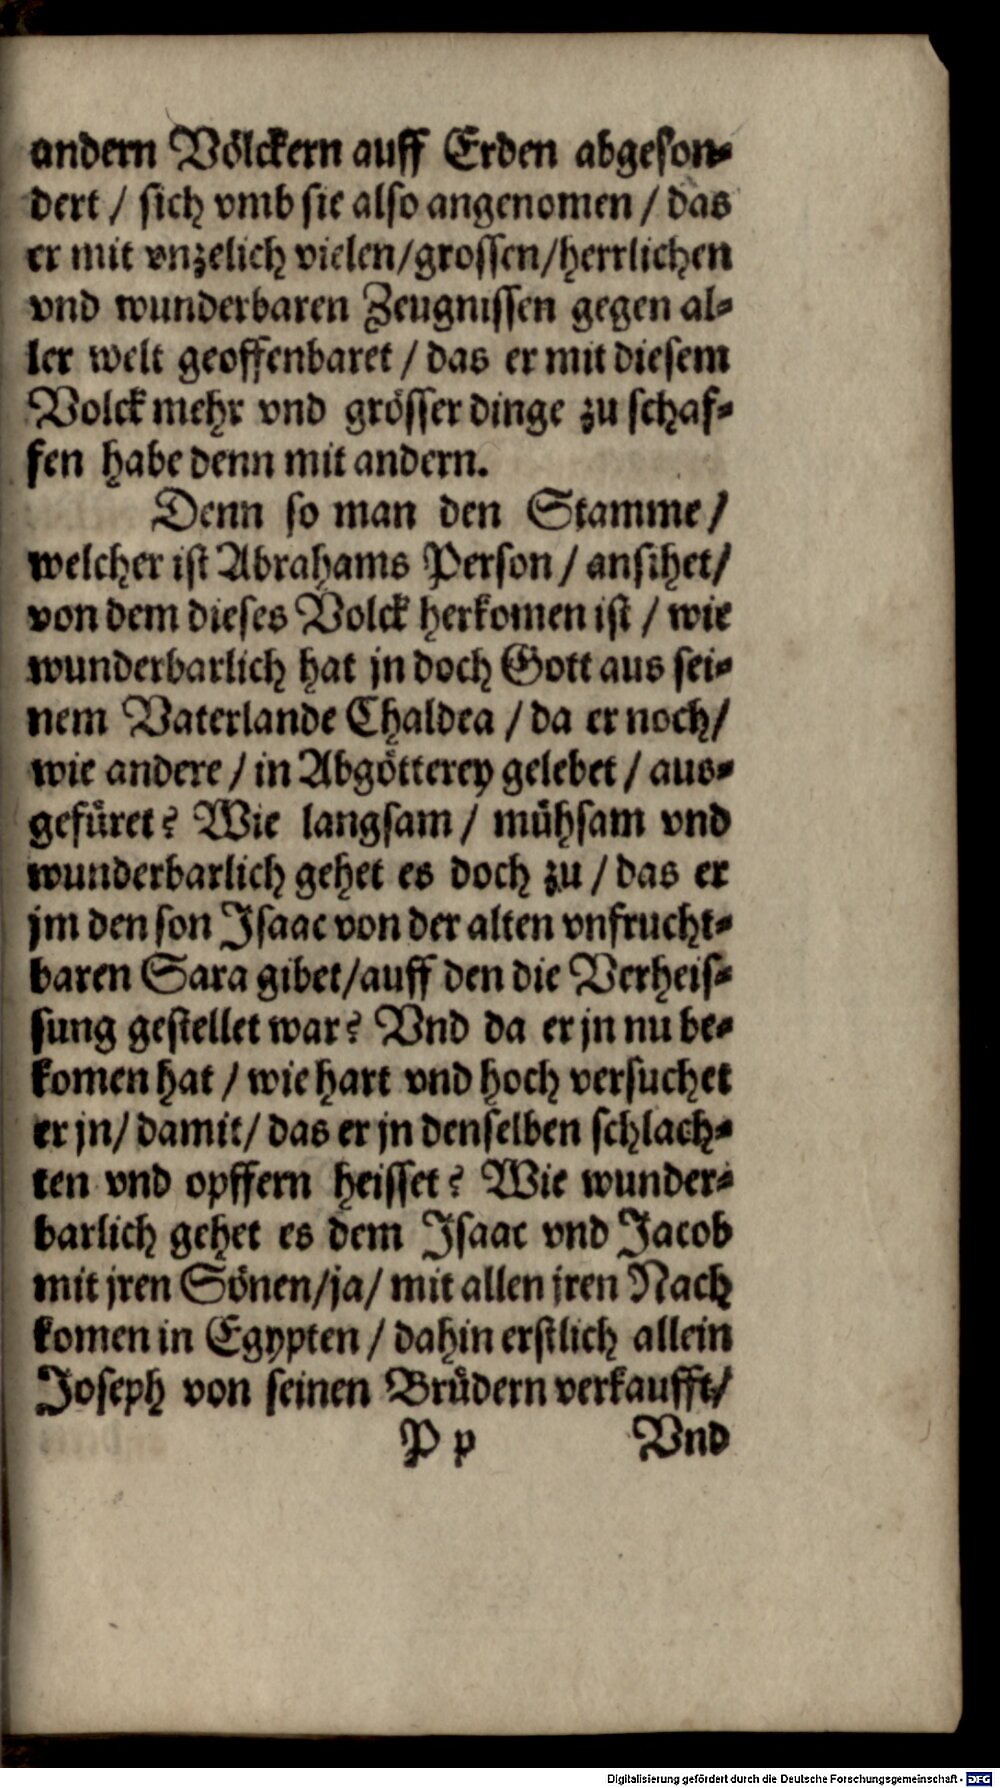 andern Völckern auff Erden abgeson⸗
dert / sich vmb sie also angenomen / das
er mit vnzelich vielen/grossen/herrlichen
vnd wunderbaren Zeugnissen gegen al⸗
ler welt geoffenbaret / das er mit diesem
Volck mehr vnd grösser dinge zu schaf⸗
fen habe denn mit andern.
Denn so man den Stamme /
welcher ist Abrahams Person / ansihet/
von dem dieses Volck herkomen ist / wie
wunderbarlich hat jn doch Gott aus sei⸗
nem Vaterlande Chaldea / da er noch/
wie andere / in Abgötterey gelebet / aus⸗
gefüret? Wie langsam / mühsam vnd
wunderbarlich gehet es doch zu / das er
jm den son Isaac von der alten vnfrucht⸗
baren Sara gibet/auff den die Verheis⸗
sung gestellet war? Vnd da er jn nu be⸗
komen hat / wie hart vnd hoch versuchet
er jn/ damit/ das er jn denselben schlach⸗
ten vnd opffern heisset? Wie wunder⸗
barlich gehet es dem Isaac vnd Jacob
mit jren Sönen/ja/ mit allen jren Nach
komen in Egypten / dahin erstlich allein
Joseph von seinen Brüdern verkaufft/
P p Vnd
Digitalisierung gefördert durch die Deutsche Forschungsgemeinschaft - DFG